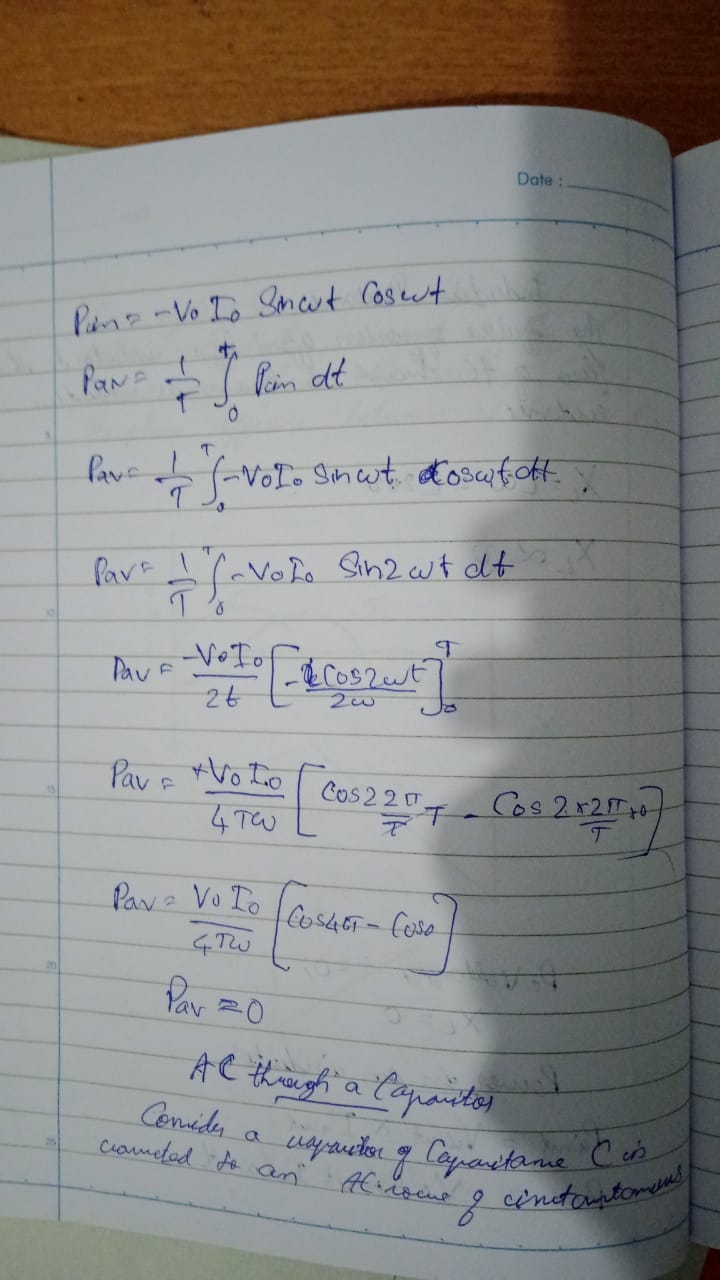 Date :
Pin = -Vo Io Sinωt Cosωt
Pav = 1/T ∫₀ᵀ Pin dt
Pav = 1/T ∫₀ᵀ -VoIo Sinωt Cosωt dt
Pav = 1/T ∫₀ᵀ -VoIo Sin2ωt dt
Pav = -VoIo/2t [-Cos2ωt/2ω]₀ᵀ
Pav = +VoIo/4Tω [Cos2 2π/T T - Cos 2×2π/T ×0]
Pav = VoIo/4Tω [Cos4π - Cos0]
Pav = 0
AC through a Capacitor
Consider a capacitor of Capacitance C is
connected to an AC source of instantaneous